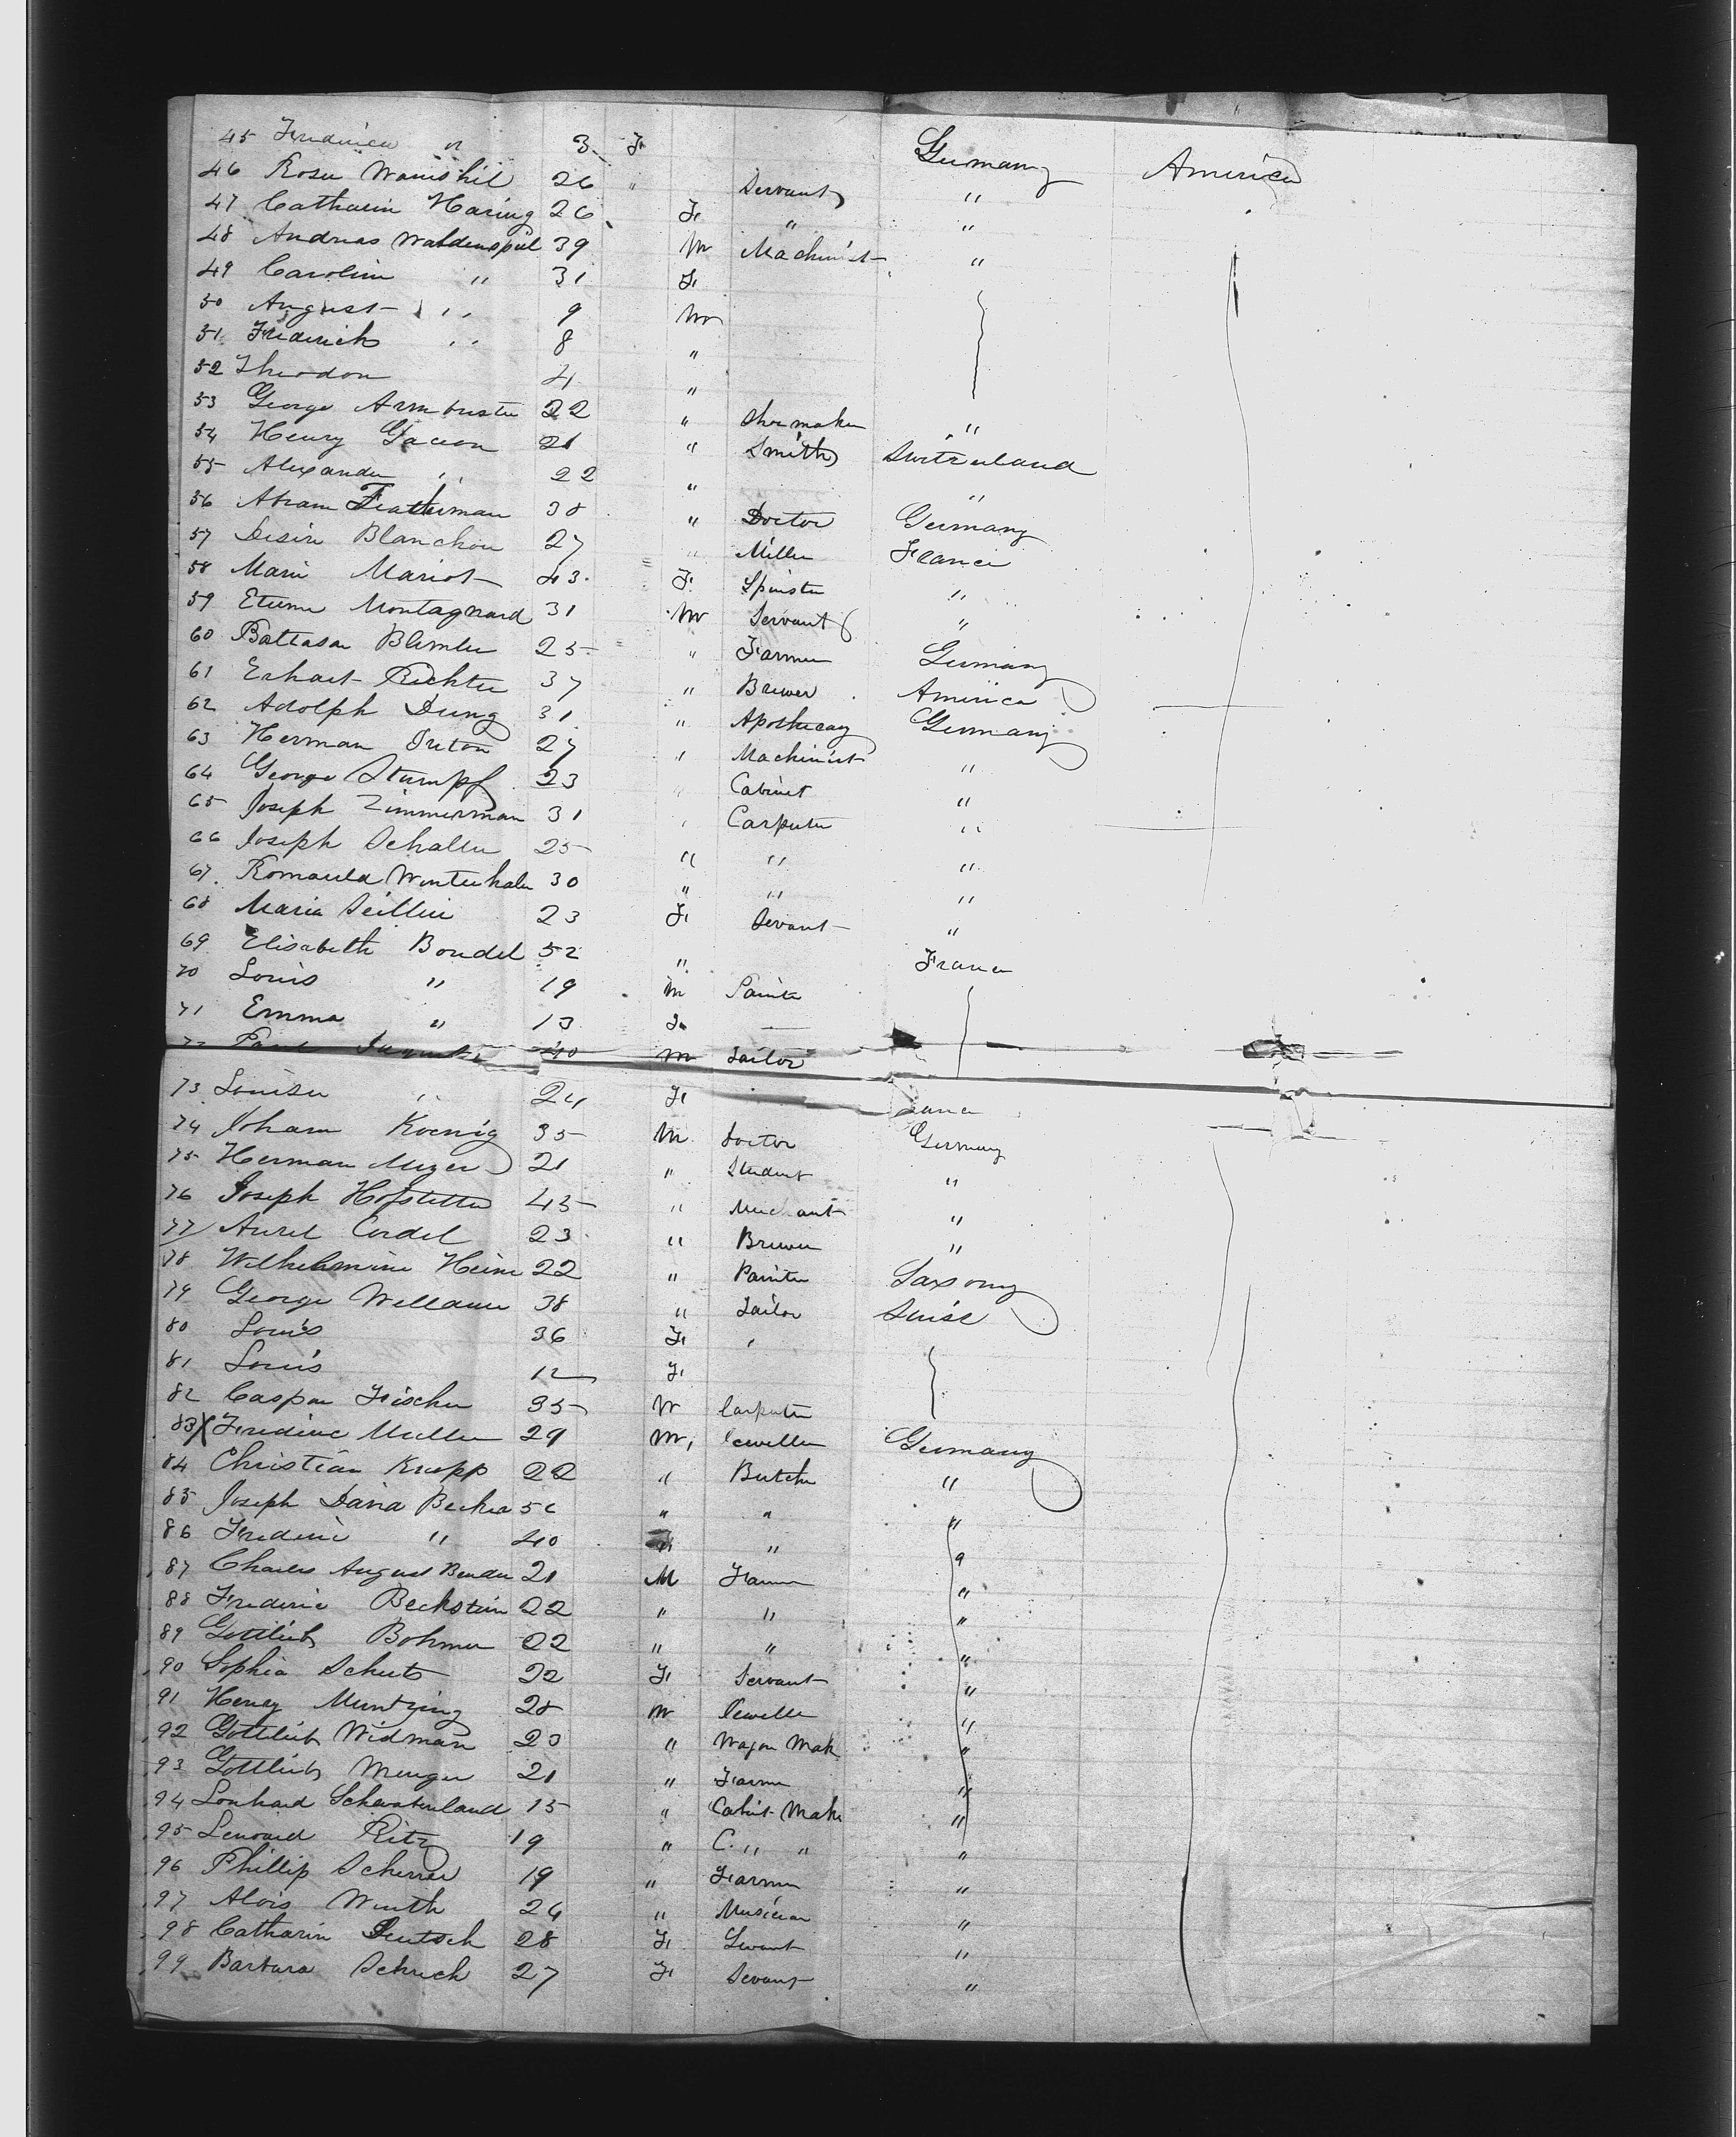 45 Frederica " 3 F Germany America
46 Rosa 26 " Servant "
47 Catharin Haring 26 F " "
48 Andreas Waldenspul 39 M Machinist "
49 Carolin " 31 F
50 August " 9 M
51 Friderich " 8 "
52 Theodor 4 "
53 George Armbuster 22 " Shoemaker "
54 Henry 21 " Smith Switzerland
55 Alexander " 22 " "
56 Abram Featherman 38 " Doctor Germany
57 Desire Blanchon 27 " Miller France
58 Marie Mariot 43 F Spinster "
59 Etienne Montagnard 31 M Servant "
60 Baltasar Blimler 25 " Farmer Germany
61 Erhart Richter 37 " Brewer America
62 Adolph Dung 31 " Apothecary Germany
63 Herman 27 " Machinist "
64 George Stumpf 23 " Cabinet "
65 Joseph Zimmerman 31 " Carpenter "
66 Joseph Schaller 25 " " "
67 Romauld Winterhaler 30 " " "
68 Maria 23 F Servant "
69 Elisabeth Boudel 52 " France
70 Louis " 19 M Painter
71 Emma " 13 F —
72 40 M Tailor
73 Louise " 24 F
74 Johann Koenig 35 M Doctor Germany
75 Herman Meyer 21 " Student "
76 Joseph Hofstetter 45 " Merchant "
77 Aurel Cordel 23 " Brewer "
78 Wilhelmine Heine 22 " Painter Saxony
79 George Wellauer 38 " Tailor Suise
80 Louis 36 F "
81 Louis 12 F
82 Caspar Fischer 35 M Carpenter
83 X Frederic Muller 29 M Jeweller Germany
84 Christian Krupp 22 " Butcher "
85 Joseph David Becker " " "
86 Frederic " 40 " "
87 Charles August Bender 21 M Farmer "
88 Frederic Beckstein 22 " " "
89 Gottlieb Bohmer 22 " " "
90 Sophia Schutz 22 F Servant "
91 Henry Muntzing 28 M Jeweller "
92 Gottlieb Widman 23 " Wagon Mak "
93 Gottlieb Menger 21 " Farmer "
94 Lonhard 15 " Cabint Make "
95 Lenoard Ritz 19 " C. " " "
96 Phillip Scherrer 19 " Farmer "
97 Alois Wirth 24 " Musician "
98 Catharin Deutsch 28 F Servant "
99 Barbara Schuch 27 F Servant "